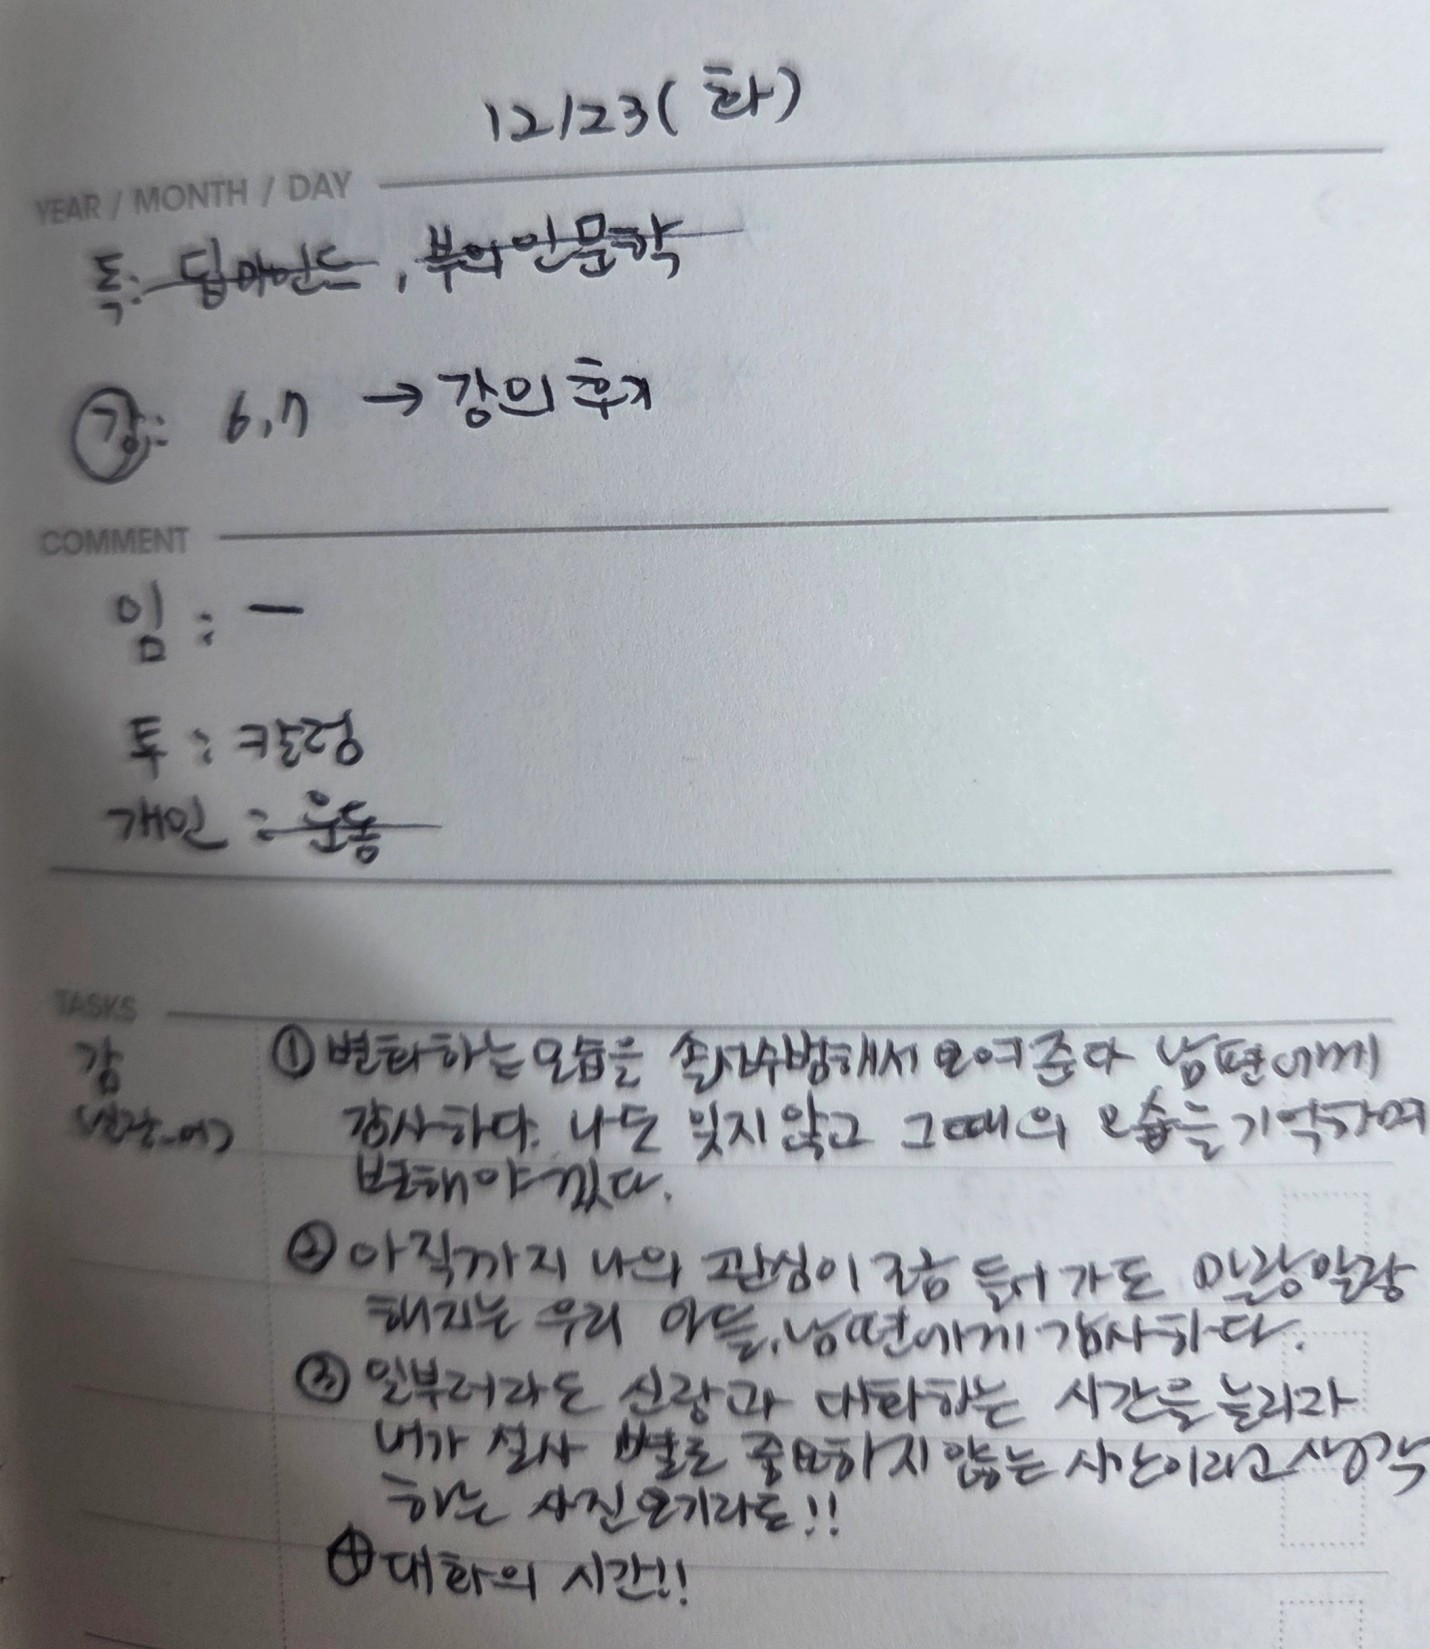 12/23(화)
YEAR / MONTH / DAY
독: 딥마인드, 부의 인문학
강: 6, 7 → 강의 후기
COMMENT
임 : ー
투 : 칼럼
개인 : 운동
TASKS
감 ① 변화하는 모습을 솔선수범해서 보여준다 남편에게
감사하다. 나도 잊지 않고 그때의 모습을 기억하며
변해야겠다.
② 아직까지 나의 관심이 조금 들어가도 말랑말랑
해지는 우리 아들, 남편에게 감사하다.
③ 일부러라도 신랑과 대화하는 시간을 늘리자
내가 설사 별로 중요하지 않는 시간이라고 생각
하는 사진보기라도!!
⊕ 대화의 시간!!